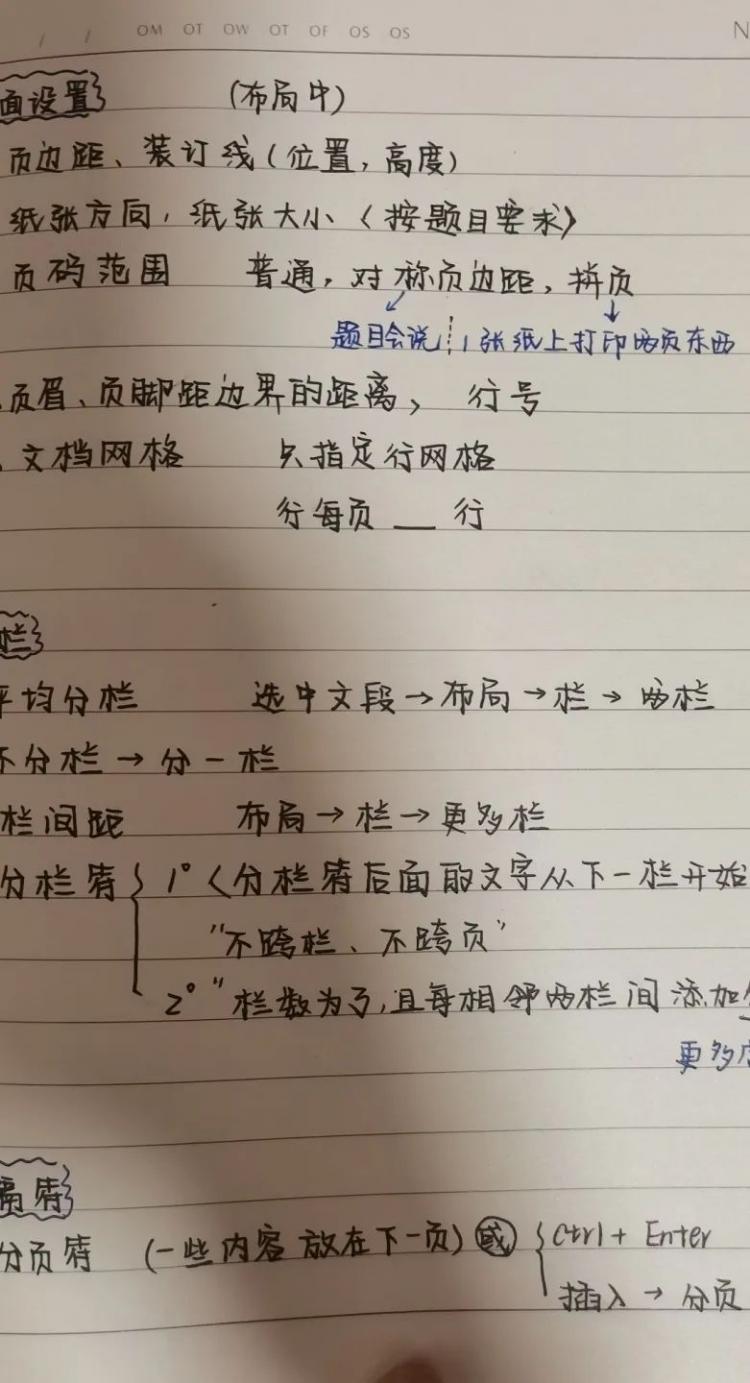 OM OT OW OT OF OS OS N
面设置 (布局中)
页边距、装订线(位置,高度)
纸张方向,纸张大小〈按题目要求〉
页码范围 普通,对称页边距,拼页
题目会说 1张纸上打印两页东西
页眉、页脚距边界的距离, 行号
、文档网格 只指定行网格
行每页 __ 行
栏
平均分栏 选中文段→布局→栏→两栏
不分栏→分一栏
栏间距 布局→栏→更多栏
分栏符 1°〈分栏符后面的文字从下一栏开始
"不跨栏、不跨页"
2°"栏数为3,且每相邻两栏间添加
更多
隔符
分页符 (一些内容放在下一页)或 Ctrl + Enter
插入→分页